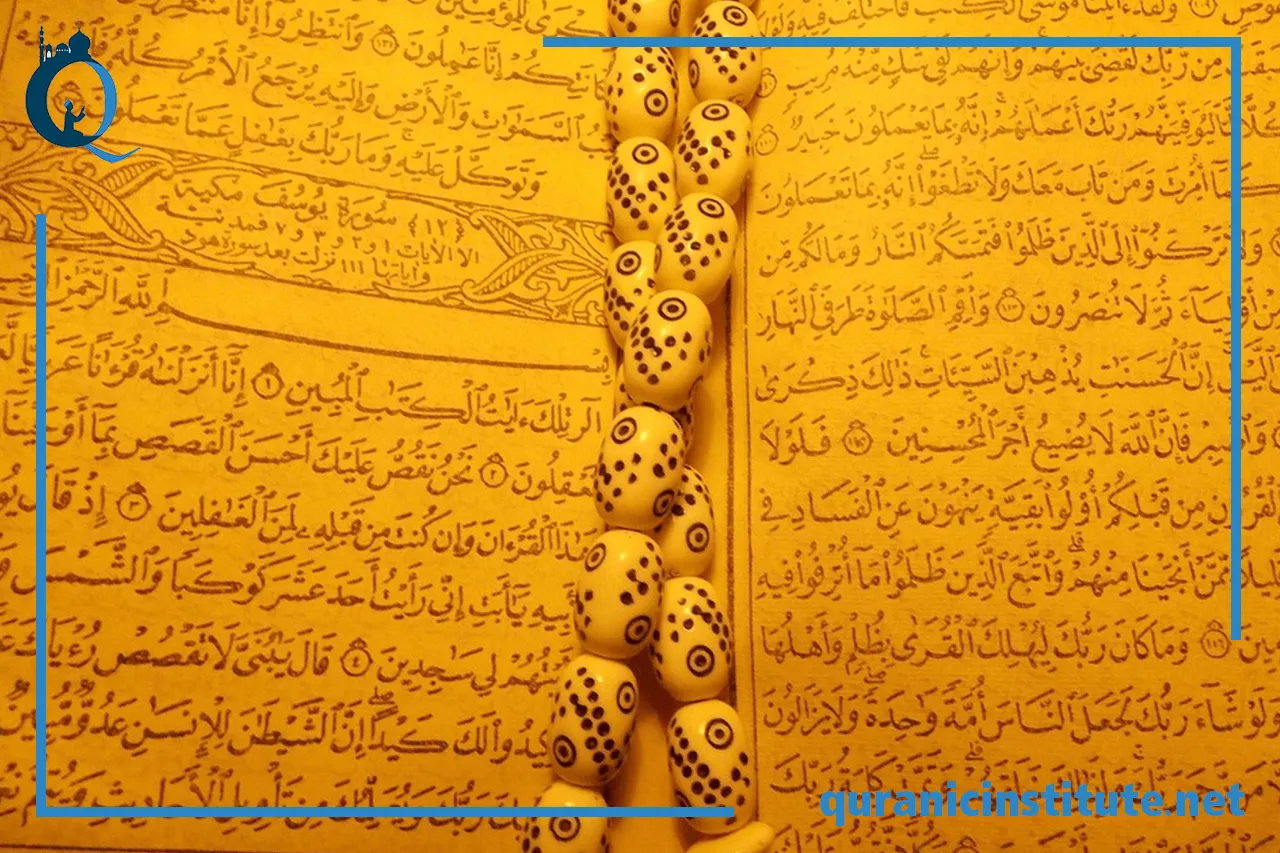 وَلَقَدْ ءَاتَيْنَا مُوسَى ٱلْكِتَٰبَ فَٱخْتُلِفَ فِيهِ وَلَوْلَا
مِن رَّبِّكَ لَقُضِىَ بَيْنَهُمْ وَإِنَّهُمْ لَفِى شَكٍّ مِّنْهُ مُرِيبٍ
لَيُوَفِّيَنَّهُمْ رَبُّكَ أَعْمَٰلَهُمْ إِنَّهُۥ بِمَا يَعْمَلُونَ خَبِيرٌ ﴿١١١﴾
كَمَآ أُمِرْتَ وَمَن تَابَ مَعَكَ وَلَا تَطْغَوْا۟ إِنَّهُۥ بِمَا تَعْمَلُونَ
وَلَا تَرْكَنُوٓا۟ إِلَى ٱلَّذِينَ ظَلَمُوا۟ فَتَمَسَّكُمُ ٱلنَّارُ وَمَا لَكُم مِّن
مِنْ أَوْلِيَآءَ ثُمَّ لَا تُنصَرُونَ ﴿١١٣﴾ وَأَقِمِ ٱلصَّلَوٰةَ طَرَفَىِ ٱلنَّهَارِ
ٱلَّيْلِ إِنَّ ٱلْحَسَنَٰتِ يُذْهِبْنَ ٱلسَّيِّـَٔاتِ ذَٰلِكَ ذِكْرَىٰ
وَٱصْبِرْ فَإِنَّ ٱللَّهَ لَا يُضِيعُ أَجْرَ ٱلْمُحْسِنِينَ ﴿١١٥﴾ فَلَوْلَا
ٱلْقُرُونِ مِن قَبْلِكُمْ أُو۟لُوا۟ بَقِيَّةٍ يَنْهَوْنَ عَنِ ٱلْفَسَادِ فِى
قَلِيلًا مِّمَّنْ أَنجَيْنَا مِنْهُمْ وَٱتَّبَعَ ٱلَّذِينَ ظَلَمُوا۟ مَآ أُتْرِفُوا۟ فِيهِ
﴿١١٦﴾ وَمَا كَانَ رَبُّكَ لِيُهْلِكَ ٱلْقُرَىٰ بِظُلْمٍ وَأَهْلُهَا
وَلَوْ شَآءَ رَبُّكَ لَجَعَلَ ٱلنَّاسَ أُمَّةً وَٰحِدَةً وَلَا يَزَالُونَ
إِنَّا عَٰمِلُونَ ﴿١٢١﴾ وَٱنتَظِرُوٓا۟ إِنَّا
ٱلسَّمَٰوَٰتِ وَٱلْأَرْضِ وَإِلَيْهِ يُرْجَعُ ٱلْأَمْرُ كُلُّهُۥ
وَتَوَكَّلْ عَلَيْهِ وَمَا رَبُّكَ بِغَٰفِلٍ عَمَّا تَعْمَلُونَ
﴿١٢﴾ سُورَةُ يُوسُفَ مَكِيَّة
الا الآيات ١ و ٢ و ٣ و ٧ فمدنية
وآياتها ١١١ نزلت بعد سورة هود
بِسْمِ ٱللَّهِ ٱلرَّحْمَٰنِ
الٓر تِلْكَ ءَايَٰتُ ٱلْكِتَٰبِ ٱلْمُبِينِ ﴿١﴾ إِنَّآ أَنزَلْنَٰهُ قُرْءَٰنًا عَرَبِيًّا
تَعْقِلُونَ ﴿٢﴾ نَحْنُ نَقُصُّ عَلَيْكَ أَحْسَنَ ٱلْقَصَصِ بِمَآ أَوْحَيْنَآ
هَٰذَا ٱلْقُرْءَانَ وَإِن كُنتَ مِن قَبْلِهِۦ لَمِنَ ٱلْغَٰفِلِينَ ﴿٣﴾ إِذْ قَالَ
يَٰٓأَبَتِ إِنِّى رَأَيْتُ أَحَدَ عَشَرَ كَوْكَبًا وَٱلشَّمْسَ
رَأَيْتُهُمْ لِى سَٰجِدِينَ ﴿٤﴾ قَالَ يَٰبُنَىَّ لَا تَقْصُصْ رُءْيَاكَ
فَيَكِيدُوا۟ لَكَ كَيْدًا إِنَّ ٱلشَّيْطَٰنَ لِلْإِنسَٰنِ عَدُوٌّ مُّبِينٌ
رَبُّكَ وَيُعَلِّمُكَ مِن تَأْوِيلِ ٱلْأَحَادِيثِ وَيُتِمُّ
quranicinstitute.net